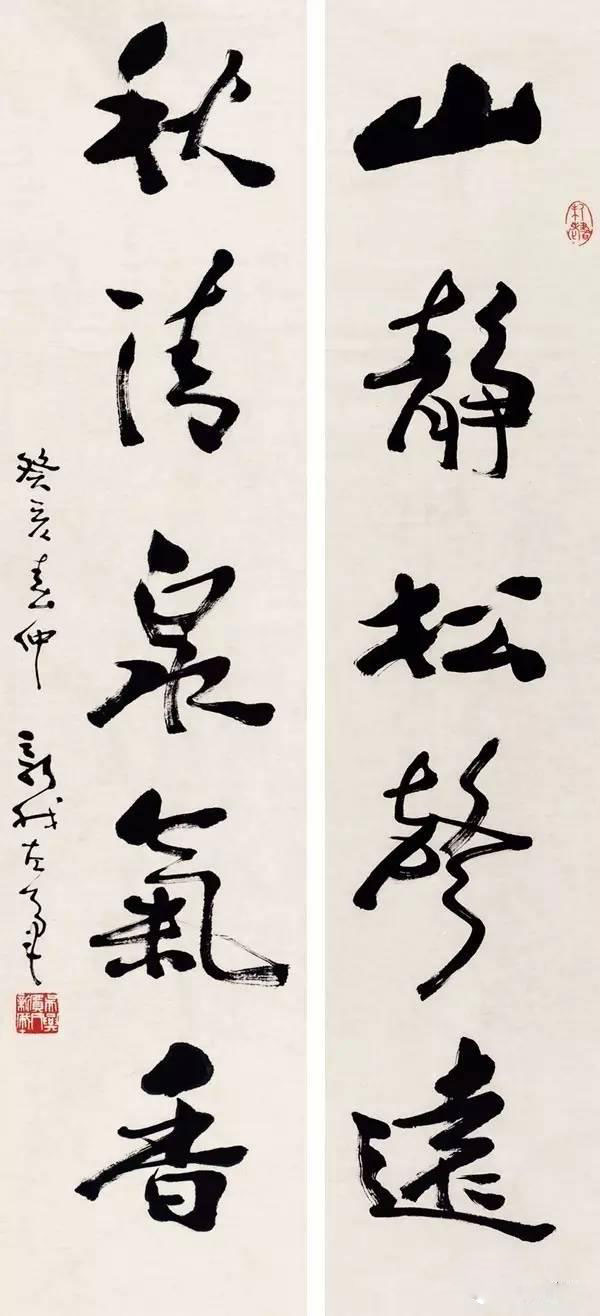 山靜松聲遠
秋清泉氣香
癸亥春仲 新我左筆